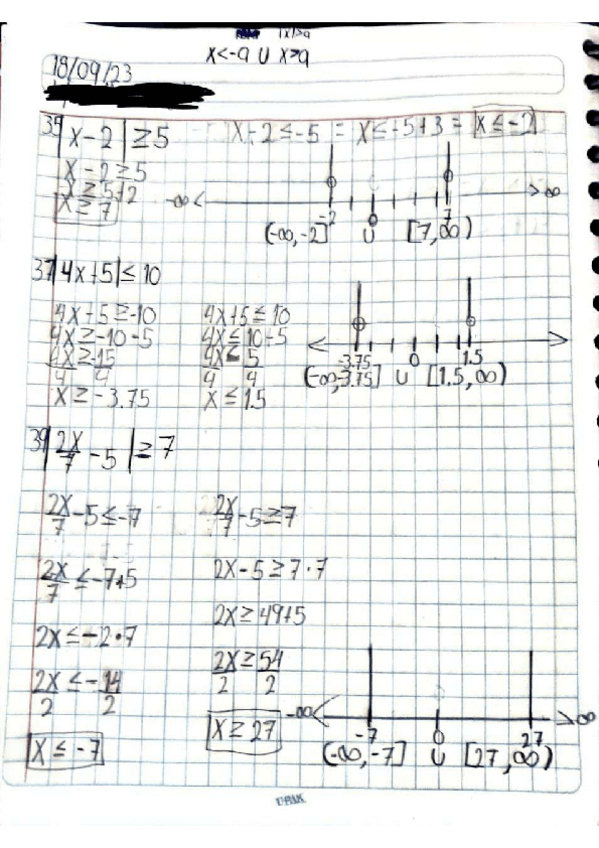 |x|>a
x<-a ∪ x>a
18/09/23
35 |x-2|≥5 x-2≤-5 = x≤-5+3 = x≤-2
x-2≥5
x≥5+2
x≥7
-∞ ∞
-2 0 7
(-∞,-2] ∪ [7,∞)
37 |4x+5|≤10
4x+5≥-10 4x+5≤10
4x≥-10-5 4x≤10-5
4x≥-15 4x≤5
4 4 4 4
x≥-3.75 x≤1.5
-3.75 0 1.5
(-∞,-3.75] ∪ [1.5,∞)
39 |2x/7-5|≥7
2x/7-5≤-7 2x/7-5≥7
2x/7≤-7+5 2x-5≥7·7
2x≤-2·7 2x≥49+5
2x≤-14 2x≥54
2 2 2 2
x≤-7 x≥27
-∞ ∞
-7 0 27
(-∞,-7] ∪ [27,∞)